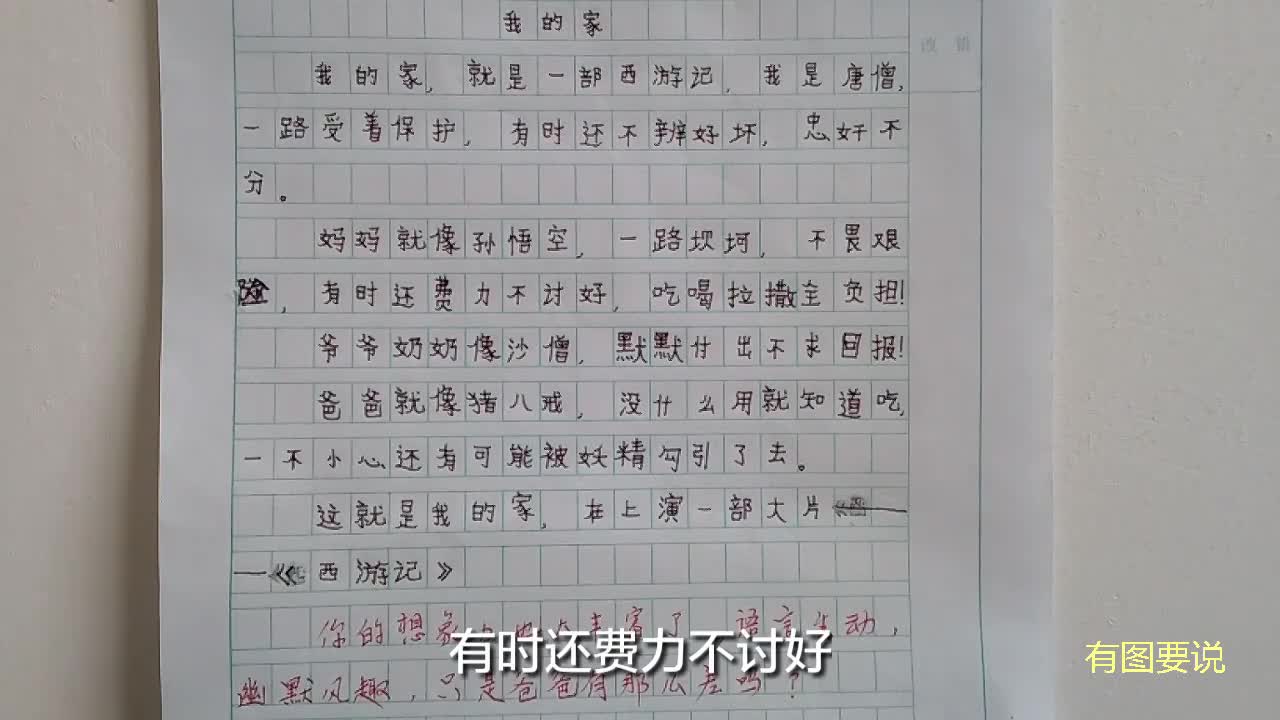 我的家
改错
我的家，就是一部西游记，我是唐僧，
一路受着保护，有时还不辨好坏，忠奸不
分。
妈妈就像孙悟空，一路坎坷，不畏艰
险，有时还费力不讨好，吃喝拉撒全负担！
爷爷奶奶像沙僧，默默付出不求回报！
爸爸就像猪八戒，没什么用就知道吃，
一不小心还有可能被妖精勾引了去。
这就是我的家，在上演一部大片
——《西游记》
你的想象力 丰富了 语言生动，
幽默风趣，只是爸爸有那么差吗？
有时还费力不讨好
有图要说